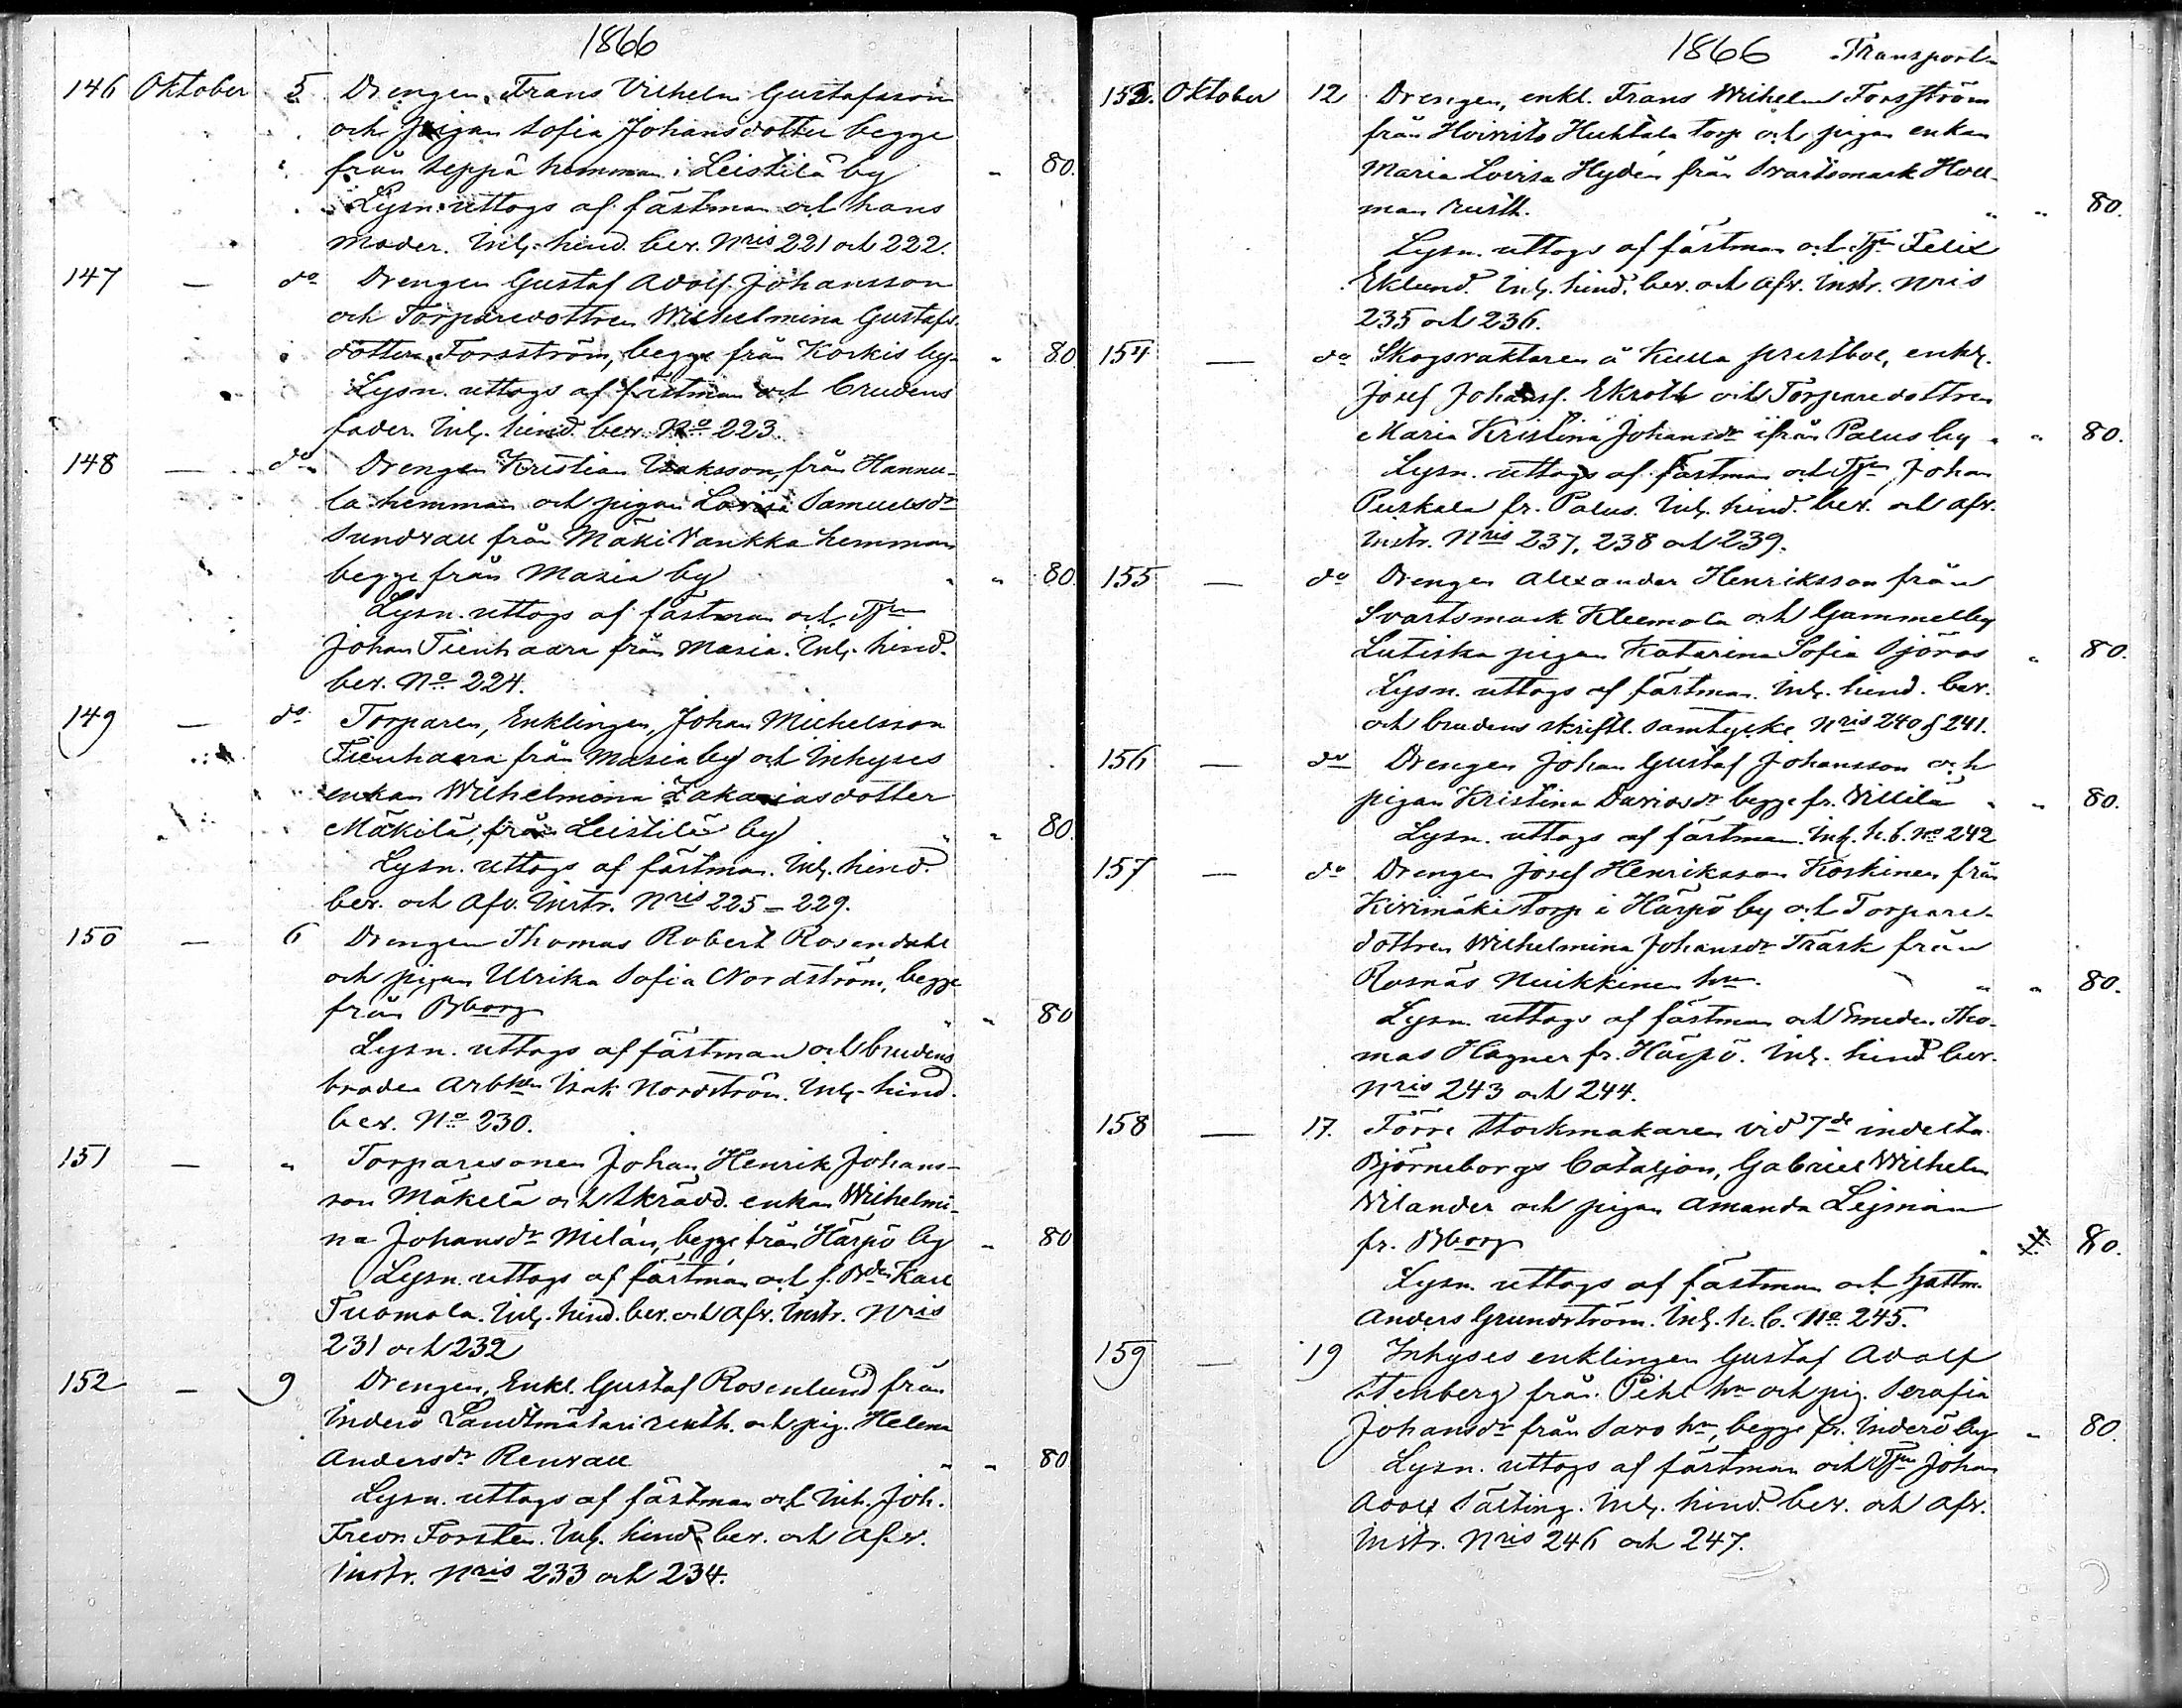 1866
146 Oktober 5 Drengen Frans Vilhelm Gustafsson
och pigan Sofia Johansdotter begge
från Seppä hemman i Leistilä by " 80.
Lysn. uttogs af fästman och hans
moder. Inl. hind. bev. Nris 221 och 222.
147 — do Drengen Gustaf Adolf Johansson
och Torparedottren Wilhelmina Gustafs-
dotter Forsström, begge från Korkis by " 80
Lysn. uttogs af fästman och brudens
fader. Inl. hind. bev. No 223.
148 — do Drengen Kristian Isaksson, från Hannu-
la hemman och pigan Lovisa Samuelsdr
Sundvall från Mäki Vankka hemman
begge från Masia by " " 80
Lysn. uttogs af fästman och Tjn
Johan Tienhaara från Masia. Inl. hind.
bev. No 224.
149 — do Torparen, Enklingen, Johan Michelsson
Tienhaara från Masia by och Inhyses
enkan Wilhelmina Zakariasdotter
Mäkilä, från Leistilä by " " 80.
Lysn. uttogs af fästman. Inl. hind.
bev. och Afv. Instr. Nris 225 – 229.
150 — 6 Drengen Thomas Robert Rosendahl
och pigan Ulrika Sofia Nordström, begge
från Bborg " " 80
Lysn. uttogs af fästman och brudens
broder Arbkn Isak Nordström. Inl. hind.
bev. No 230.
151 — " Torparesonen Johan Henrik Johans-
son Mäkelä och Skrädd. enkan Wilhelmi-
na Johansdr Milán, begge från Härpö by " 80
Lysn. uttogs af fästman och f. Bden Karl
Tuomola. Inl. hind. bev. och Afv. Instr. Nris
231 och 232
152 — 9 Drengen, Enkl. Gustaf Rosenlund från
Inderö Landtmätari rusth. och pig. Helena
Andersdr Renvall " " 80
Lysn. uttogs af fästman och Inh. Joh.
Fredr Forsten. Inl. hind. bev. och Afv.
Instr. Nris 233 och 234.
1866 Transport
153. Oktober 12 Drengen, enkl. Frans Wilhelm Forsström
från Hvivisto Huhtala torp och pigan enkan
Maria Lovisa Hydén från Svartsmark Holl-
man rusth. " " 80.
Lysn. uttogs af fästman och Tjn Felix
Eklund. Inl. hind. bev. och Afv. Instr. Nris
235 och 236.
154 — do Skogsvaktaren å Kulla prestbol, enkl.
Josef Johanss. Ekroth och Torparedottren
Maria Kristina Johansdr ifrån Palus by " " 80.
Lysn. uttogs af fästman och Tjn Johan
Puskala fr. Palus. Inl. hind. bev. och afv.
Instr. Nris 237, 238 och 239.
155 — do Drengen Alexander Henriksson från
Svartsmark Kleemola och Gammelby
Lutiska pigan Katarina Sofia Sjöros " 80.
Lysn. uttogs af fästman. Inl. hind. bev.
och brudens skriftl. samtycke Nris 240 & 241.
156 — do Drengen Johan Gustaf Johansson och
pigan Kristina Davidsdr begge fr. Villilä " " 80.
Lysn. uttogs af fästman. Inl. h. b. No 242
157 — do Drengen Josef Henriksson Koskinen från
Kivimäki torp i Härpö by och Torpare-
dottren Wilhelmina Johansdr Träsk från
Rosnäs Nuikkinen hn. " " 80.
Lysn. uttogs af fästman och Smeden Tho-
mas Hagner fr. Härpö. Inl. hind. bev.
Nris 243 och 244.
158 — 17. Förre Stockmakaren vid 7de indelta
Björneborgs Bataljon, Gabriel Wilhelm
Wilander och pigan Amanda Lejman
fr. Bborg " 80.
Lysn. uttogs af fästman och Gattm.
Anders Grundström. Inl. h. b. No 245.
159 — 19 Inhyses enklingen Gustaf Adolf
Stenberg från Pihl hn och pig. Serafia
Johansdr från Saro hn, begge fr. Inderö by " 80.
Lysn. uttogs af fästman och Tjn Johan
Adolf Sälting. Inl. hind. bev. och afv.
Instr. Nris 246 och 247.